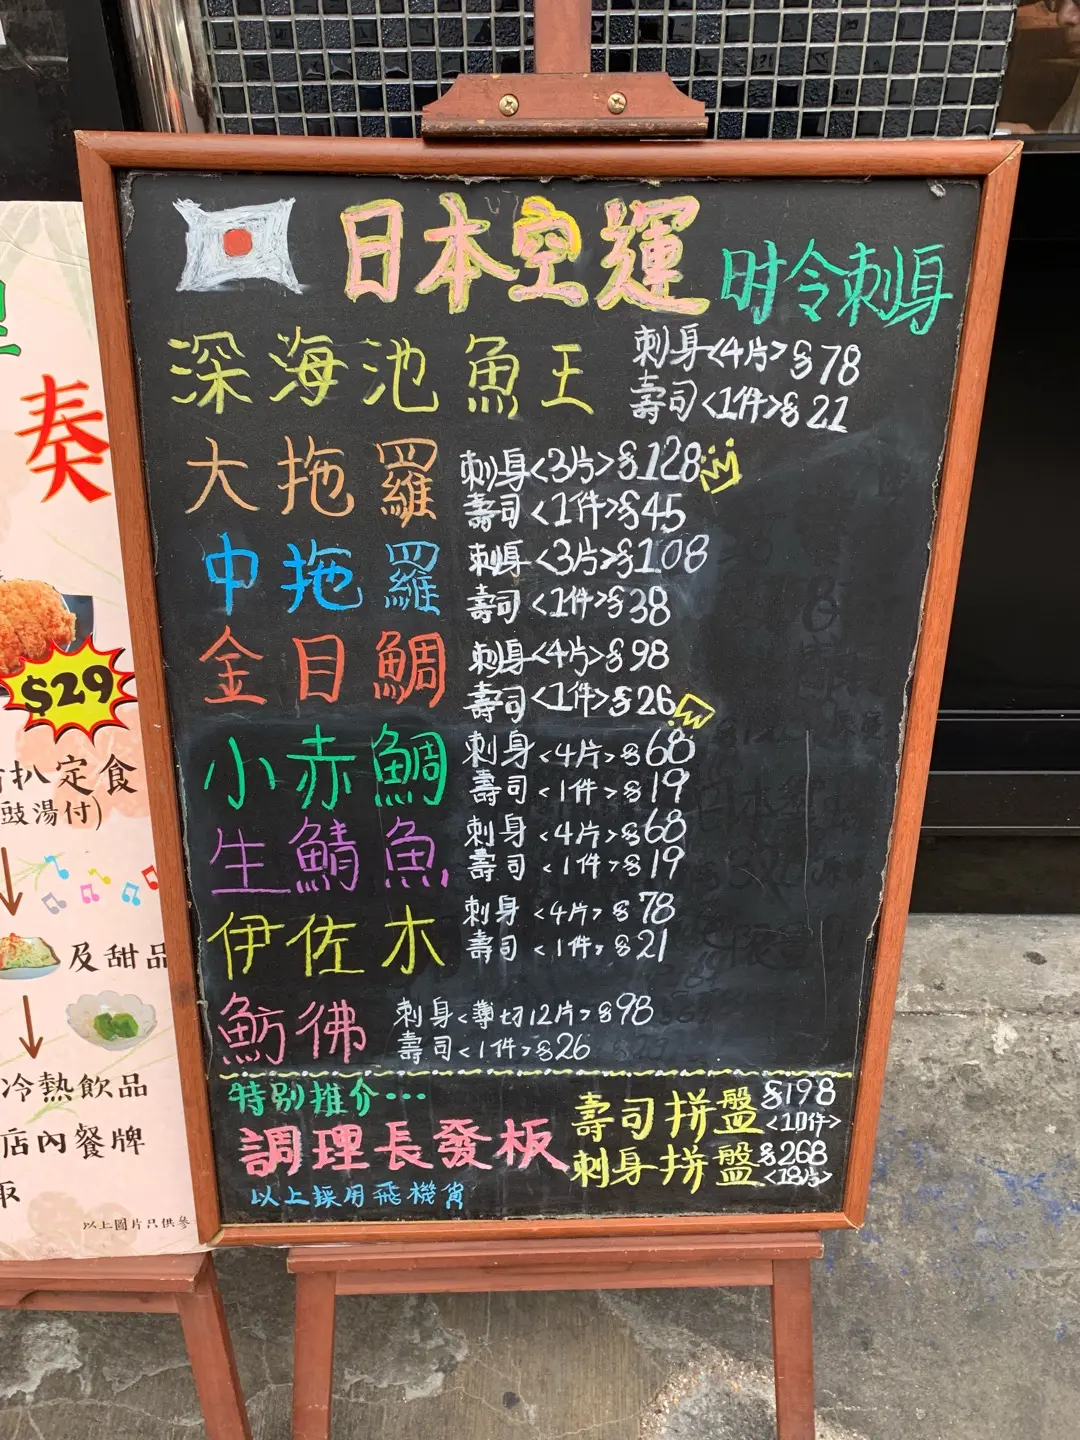 日本空運 时令刺身
深海池魚王 刺身<4片>$78
壽司<1件>$21
大拖羅 刺身<3片>$128
壽司<1件>$45
中拖羅 刺身<3片>$108
壽司<1件>$38
金目鯛 刺身<4片>$98
壽司<1件>$26
小赤鯛 刺身<4片>$68
壽司<1件>$19
生鯖魚 刺身<4片>$68
壽司<1件>$19
伊佐木 刺身<4片>$78
壽司<1件>$21
魴彿 刺身<薄切12片>$98
壽司<1件>$26
特別推介...
調理長發板
壽司拼盤 $198
<10件>
刺身拼盤 $268
<18片>
以上採用飛機貨
奏
$29
扒定食
豉湯付)
及甜品
冷熱飲品
店內餐牌
取
以上圖片只供參